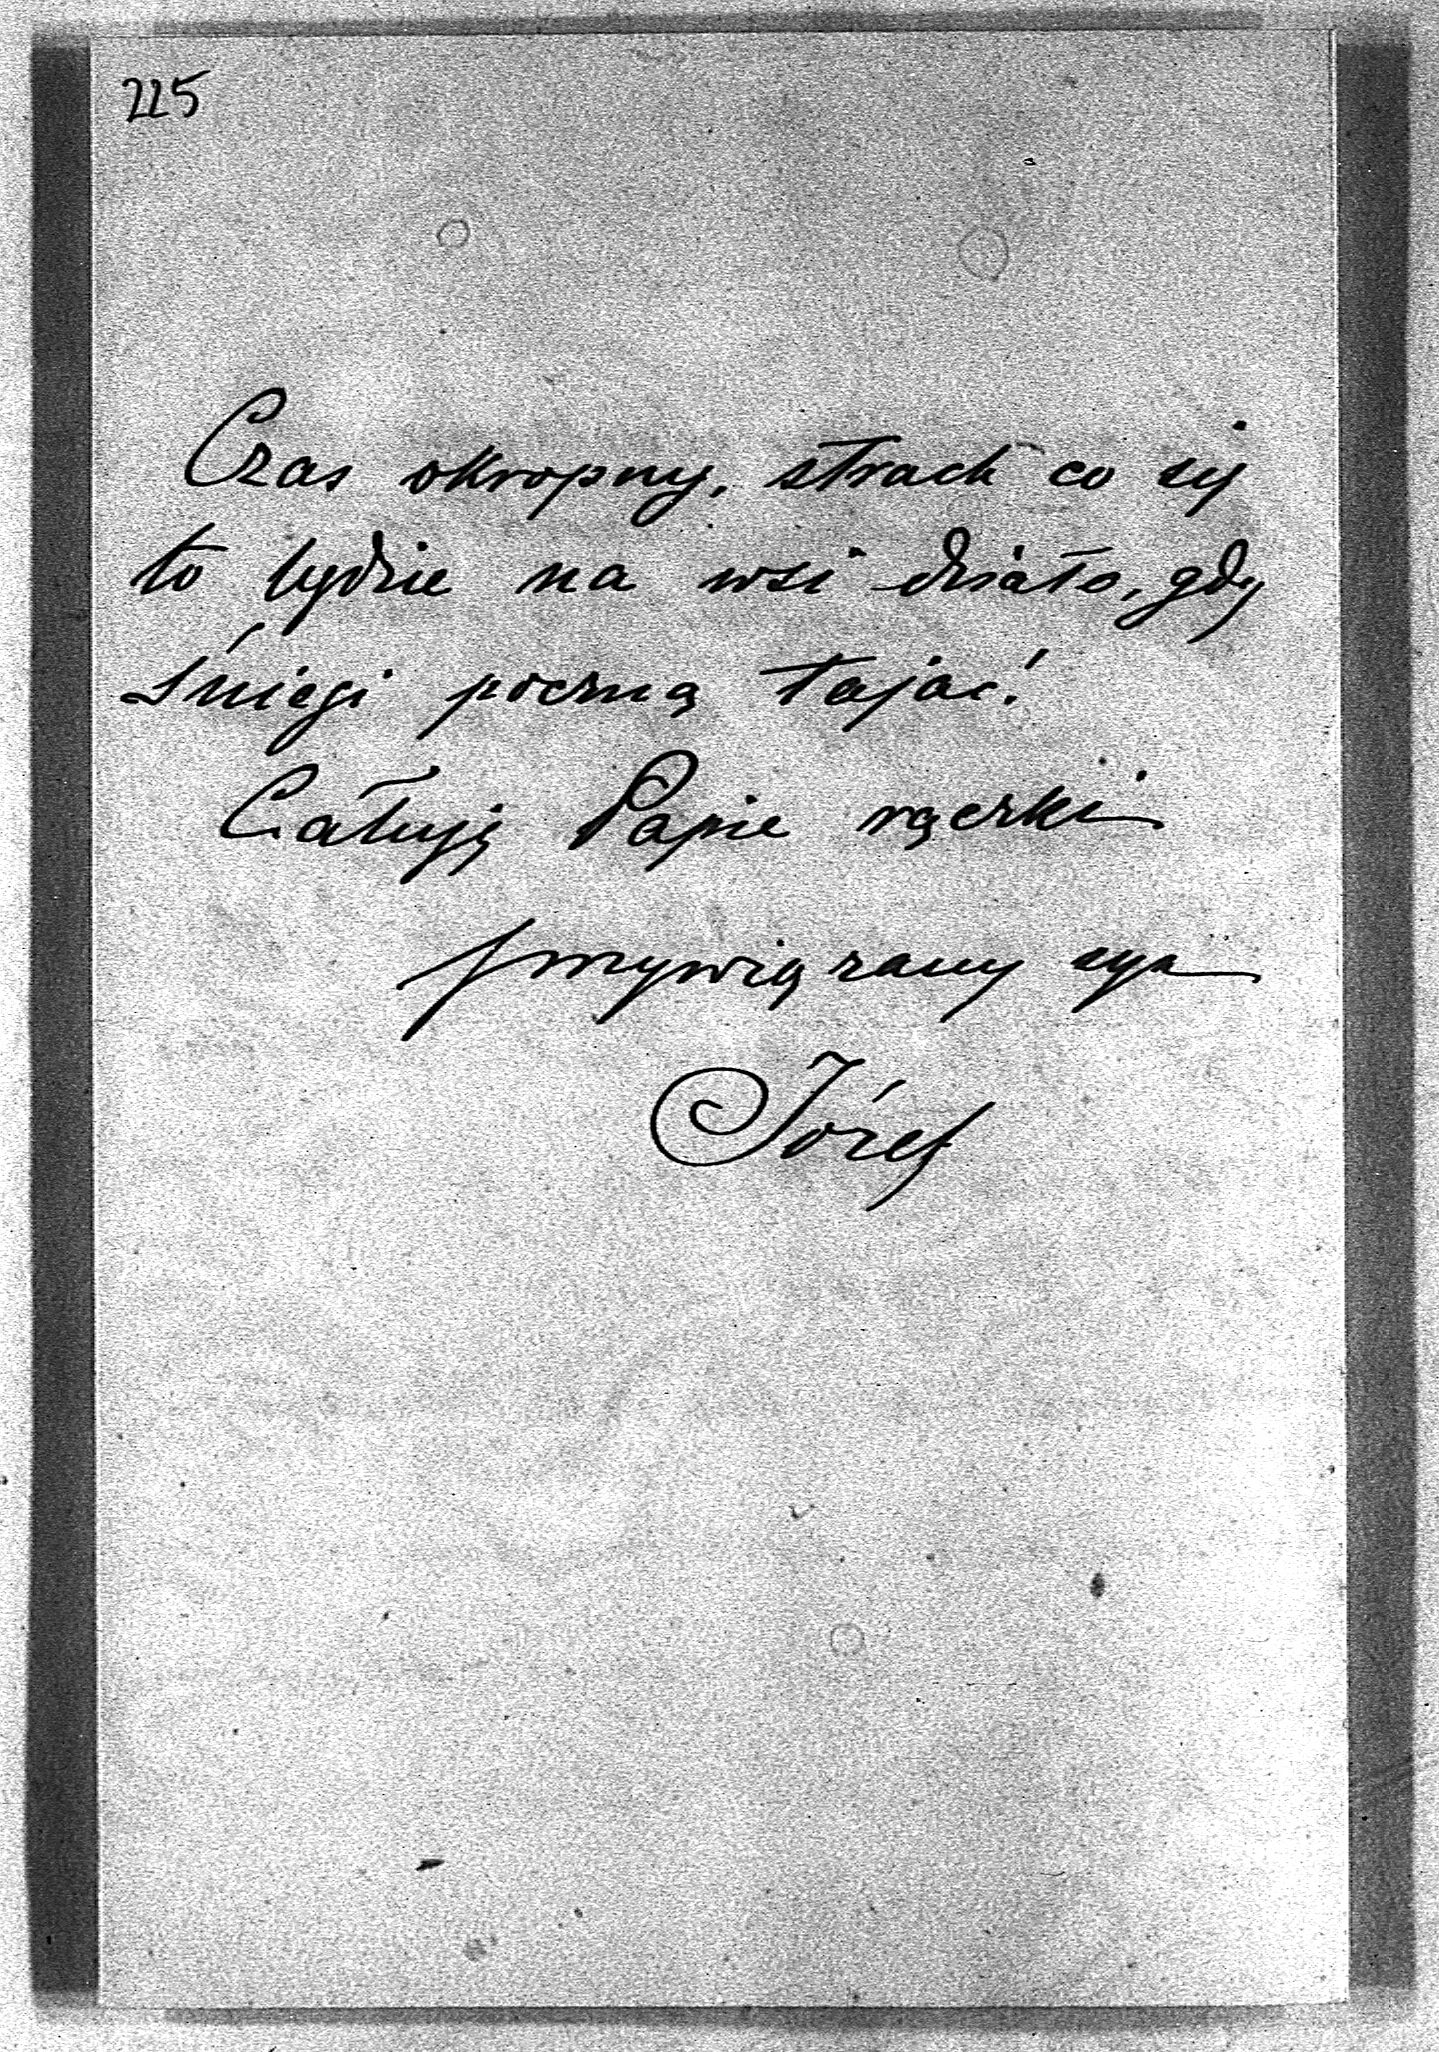 225
Czas okropny, strach co się
to będzie na wsi działo, gdy
śniegi poczną tajać.
Całuję Papie rączki
przywiązany syn
Józef